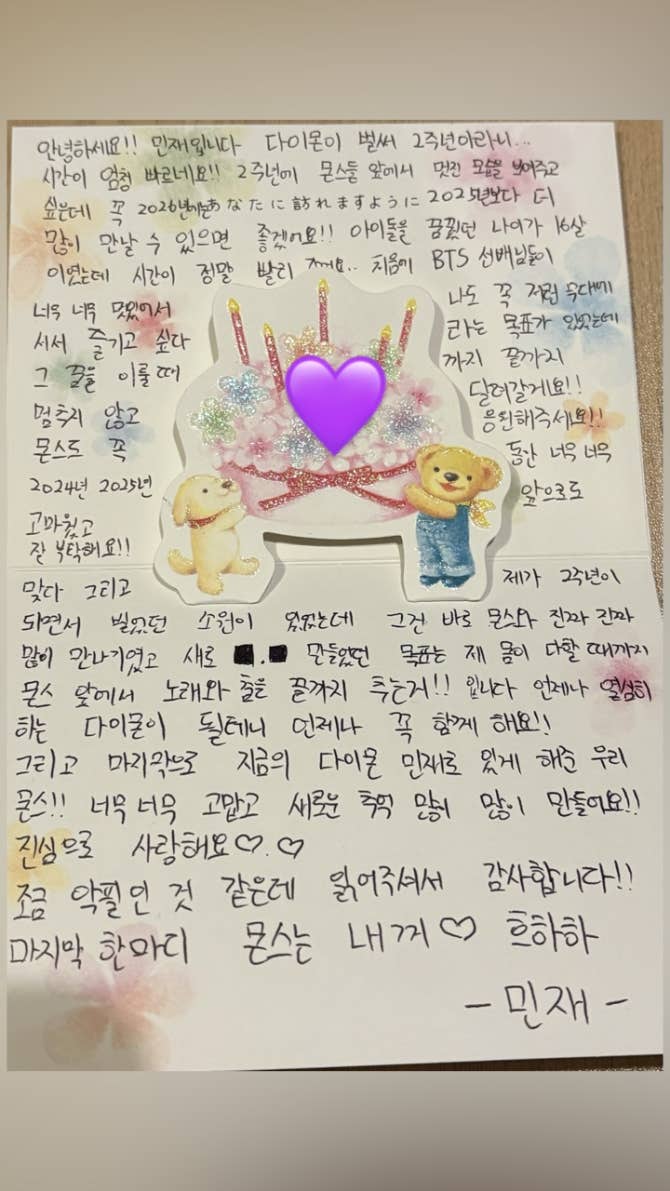 안녕하세요!! 민재입니다 다이몬이 벌써 2주년이라니...
시간이 엄청 빠르네요!! 2주년에 몬스들 앞에서 멋진 모습을 보여주고
싶은데 꼭 2026년에는あなたに訪れますように 2025년보다 더
많이 만날 수 있으면 좋겠어요!! 아이돌을 꿈꿨던 나이가 16살
이였는데 시간이 정말 빨리 가네요.. 처음에 BTS 선배님들이
너무 너무 멋있어서 나도 꼭 저런 무대에
서서 즐기고 싶다 라는 목표가 있었는데
그 꿈을 이룰 때 까지 끝까지
멈추지 않고 달려갈게요!!
몬스도 꼭 응원해주세요!!
2024년 2025년 동안 너무 너무
고마웠고 앞으로도
잘 부탁해요!!
맞다 그리고 제가 2주년이
되면서 빌었던 소원이 있었는데 그건 바로 몬스와 진짜 진짜
많이 만나기였고 새로 만들었던 목표는 제 몸이 다할 때까지
몬스 앞에서 노래와 춤을 끝까지 추는거!! 입니다 언제나 열심히
하는 다이몬이 될테니 언제나 꼭 함께 해요!!
그리고 마지막으로 지금의 다이몬 민재로 있게 해준 우리
몬스!! 너무 너무 고맙고 새로운 추억 많이 많이 만들어요!!
진심으로 사랑해요♡.♡
조금 악필인 것 같은데 읽어주셔서 감사합니다!!
마지막 한마디 몬스는 내꺼♡ 흐하하
- 민재 -